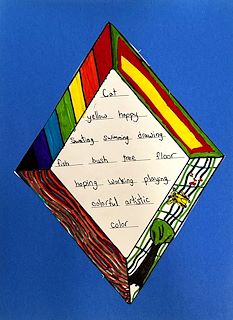 Cat
yellow happy
Skating swimming drawing
fish bush tree floor
hoping working playing
colorful artistic
color